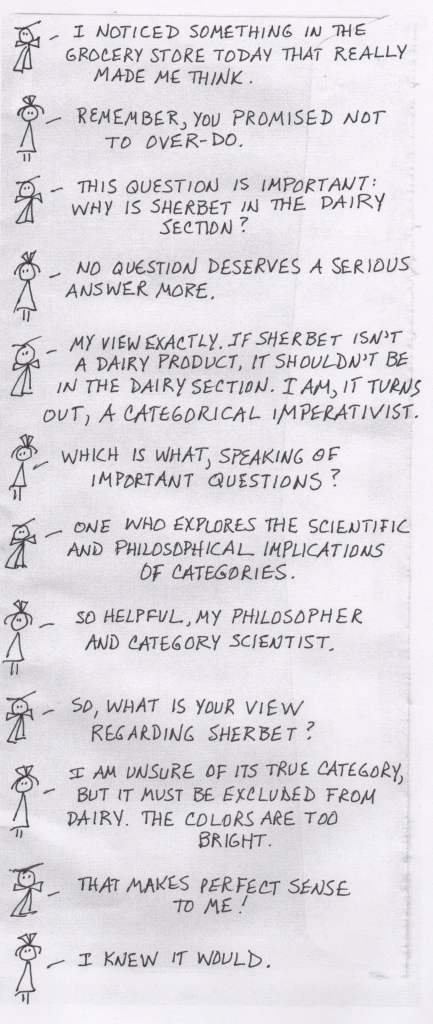 I NOTICED SOMETHING IN THE
GROCERY STORE TODAY THAT REALLY
MADE ME THINK.
REMEMBER, YOU PROMISED NOT
TO OVER-DO.
THIS QUESTION IS IMPORTANT:
WHY IS SHERBET IN THE DAIRY
SECTION?
NO QUESTION DESERVES A SERIOUS
ANSWER MORE.
MY VIEW EXACTLY. IF SHERBET ISN'T
A DAIRY PRODUCT, IT SHOULDN'T BE
IN THE DAIRY SECTION. I AM, IT TURNS
OUT, A CATEGORICAL IMPERATIVIST.
WHICH IS WHAT, SPEAKING OF
IMPORTANT QUESTIONS?
ONE WHO EXPLORES THE SCIENTIFIC
AND PHILOSOPHICAL IMPLICATIONS
OF CATEGORIES.
SO HELPFUL, MY PHILOSOPHER
AND CATEGORY SCIENTIST.
SO, WHAT IS YOUR VIEW
REGARDING SHERBET?
I AM UNSURE OF ITS TRUE CATEGORY,
BUT IT MUST BE EXCLUDED FROM
DAIRY. THE COLORS ARE TOO
BRIGHT.
THAT MAKES PERFECT SENSE
TO ME!
I KNEW IT WOULD.